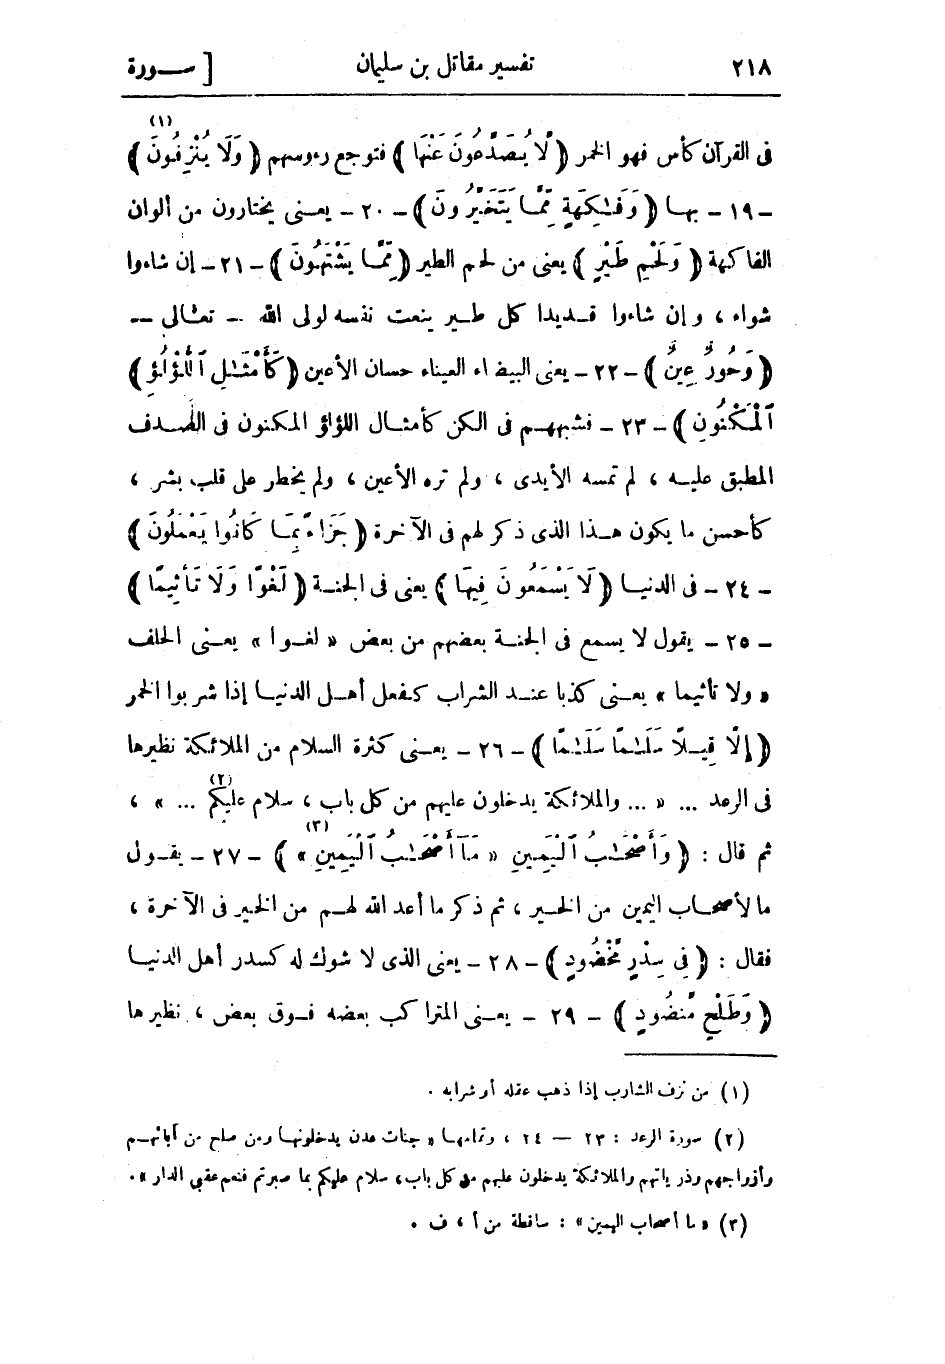 ٢١٨ تفسير مقاتل بن سليمان [ سـورة
فى القرآن كأس فهو الخمر ﴿ لَّا يُصَدَّعُونَ عَنْهَا ﴾ فتوجع رءوسهم ﴿ وَلَا يُنْزِفُونَ (١) ﴾
- ١٩ - بها ﴿ وَفَـٰكِهَةٍ مِّمَّا يَتَخَيَّرُونَ ﴾ - ٢٠ - يعنى يختارون من ألوان
الفاكهة ﴿ وَلَحْمِ طَيْرٍ ﴾ يعنى من لحم الطير ﴿ مِّمَّا يَشْتَهُونَ ﴾ - ٢١ - إن شاءوا
شواء ، وإن شاءوا قديدا كل طير ينعت نفسه لولى الله - تعالى -
﴿ وَحُورٌ عِينٌ ﴾ - ٢٢ - يعنى البيضاء العيناء حسان الأعين ﴿ كَأَمْثَـٰلِ ٱللُّؤْلُؤِ
ٱلْمَكْنُونِ ﴾ - ٢٣ - فشبههم فى الكن كأمثال اللؤلؤ المكنون فى الصدف
المطبق عليه ، لم تمسه الأيدى ، ولم تره الأعين ، ولم يخطر على قلب بشر ،
كأحسن ما يكون هذا الذى ذكر لهم فى الآخرة ﴿ جَزَاءً بِمَا كَانُوا يَعْمَلُونَ ﴾
- ٢٤ - فى الدنيا ﴿ لَا يَسْمَعُونَ فِيهَا ﴾ يعنى فى الجنة ﴿ لَغْوًا وَلَا تَأْثِيمًا ﴾
- ٢٥ - يقول لا يسمع فى الجنة بعضهم من بعض « لغوا » يعنى الحلف
« ولا تأثيما » يعنى كذبا عند الشراب كفعل أهل الدنيا إذا شربوا الخمر
﴿ إِلَّا قِيلًا سَلَـٰمًا سَلَـٰمًا ﴾ - ٢٦ - يعنى كثرة السلام من الملائكة نظيرها
فى الرعد ... « ... والملائكة يدخلون عليهم من كل باب ، سلام عليكم (٢) ... » ،
ثم قال : ﴿ وَأَصْحَـٰبُ ٱلْيَمِينِ « مَآ أَصْحَـٰبُ ٱلْيَمِينِ (٣) » ﴾ - ٢٧ - يقول
ما لأصحاب اليمين من الخير ، ثم ذكر ما أعد الله لهم من الخير فى الآخرة ،
فقال : ﴿ فِى سِدْرٍ مَّخْضُودٍ ﴾ - ٢٨ - يعنى الذى لا شوك له كسدر أهل الدنيا
﴿ وَطَلْحٍ مَّنضُودٍ ﴾ - ٢٩ - يعنى المتراكب بعضه فوق بعض ، نظيرها
(١) من نزف الشارب إذا ذهب عقله أو شرابه .
(٢) سورة الرعد : ٢٣ — ٢٤ ، وتمامها « جنات عدن يدخلونها ومن صلح من آبائهم
وأزواجهم وذرياتهم والملائكة يدخلون عليهم من كل باب ، سلام عليكم بما صبرتم فنعم عقبى الدار » .
(٣) « ما أصحاب اليمين » : ساقطة من أ ، ف .